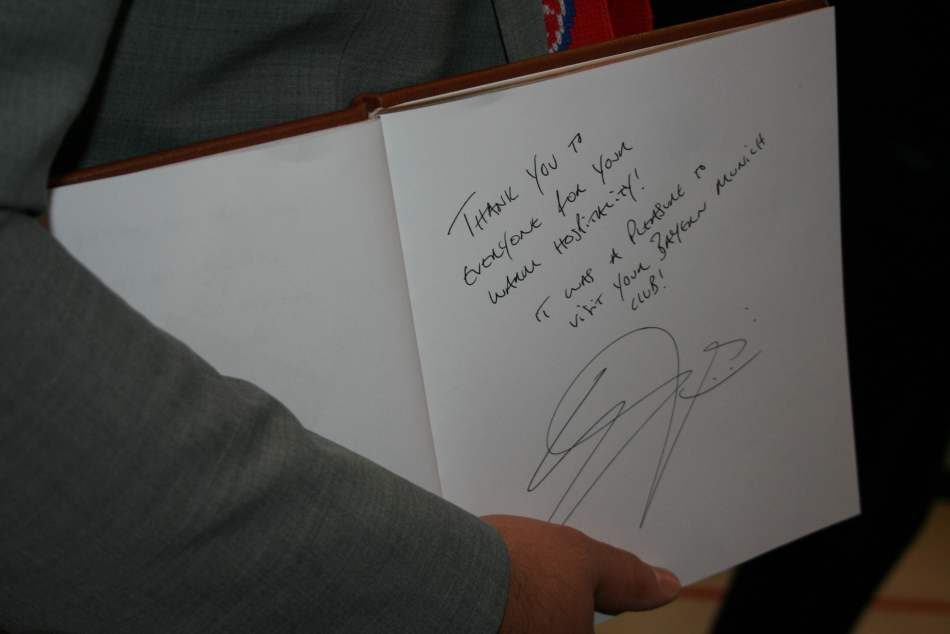 THANK YOU TO
EVERYONE FOR YOUR
WARM HOSPITALITY!
IT WAS A PLEASURE TO
VISIT YOUR BAYERN MUNICH
CLUB!